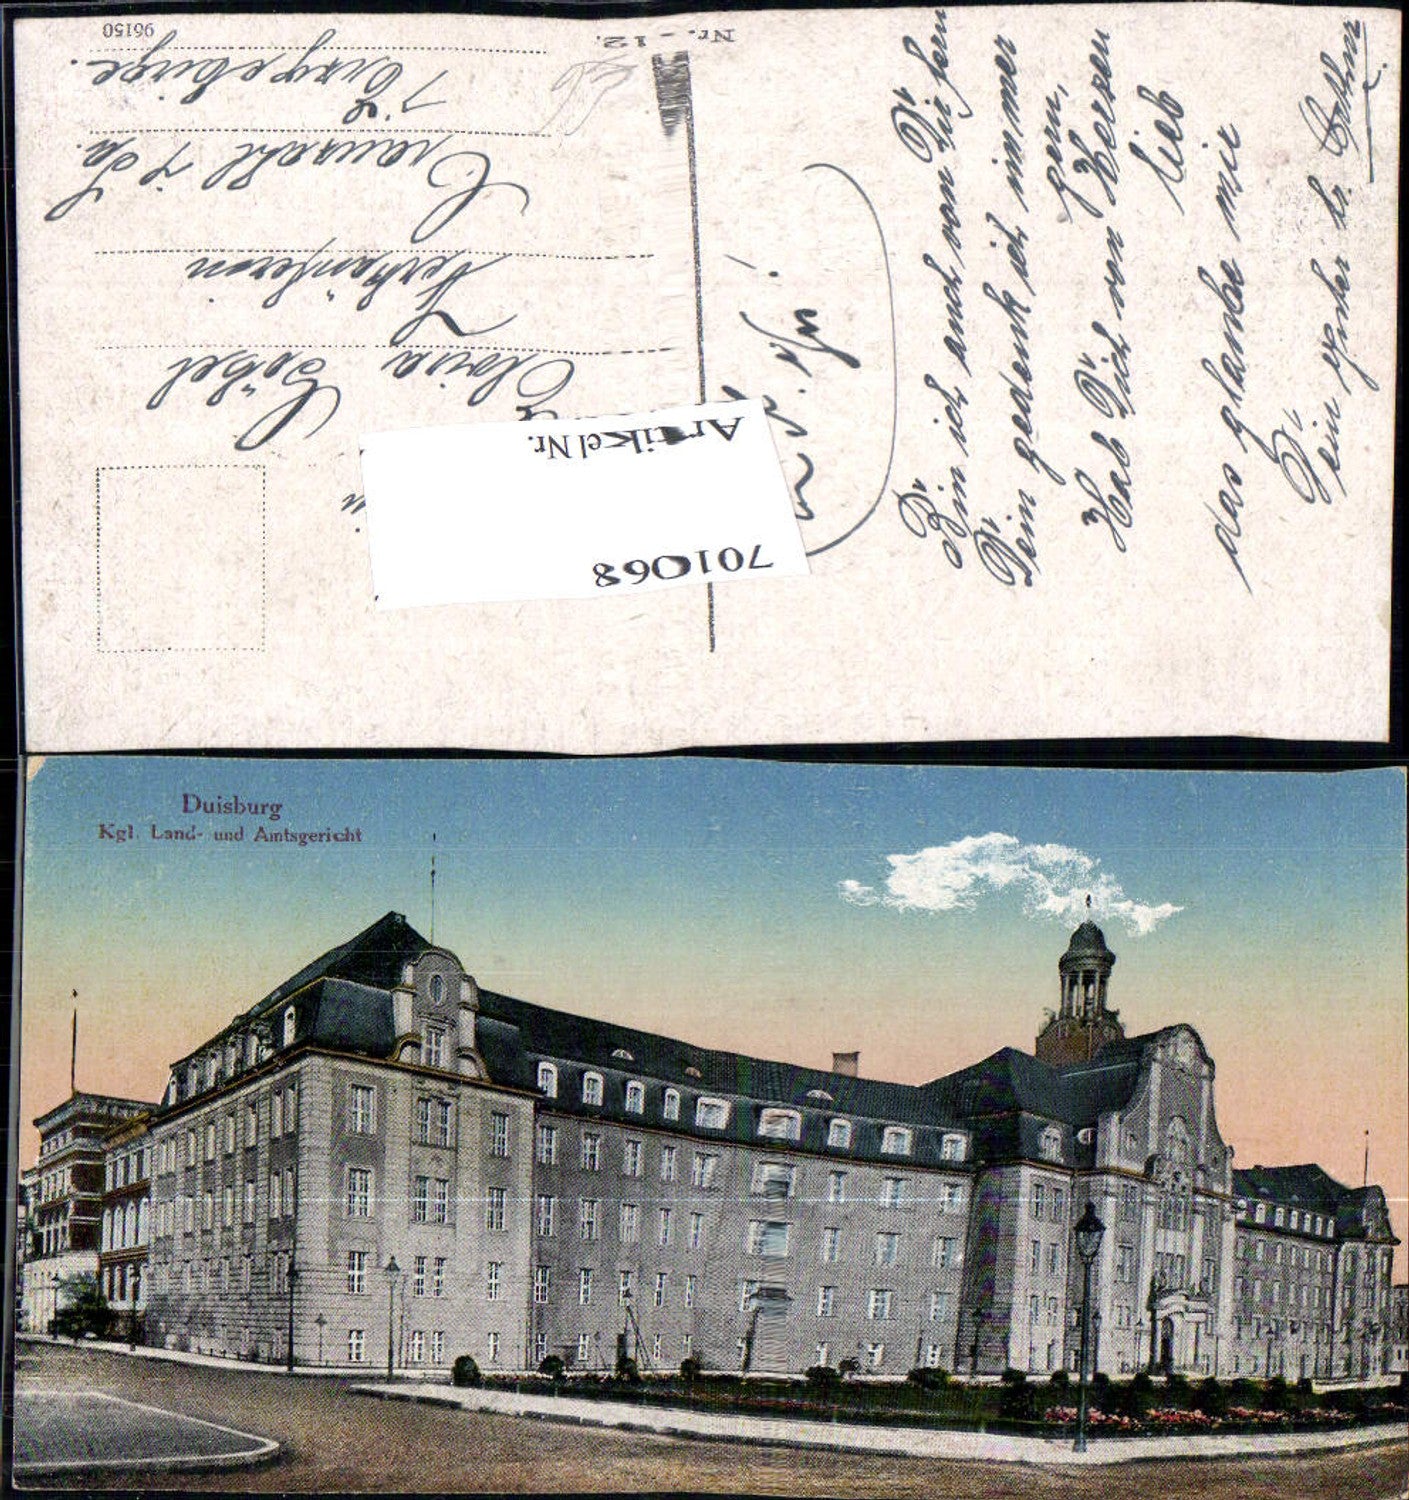 Bin ich auch von Dir fern
Dein gedenk ich immer
gern,
Hab Dich von Herzen
lieb
das glaube mir
Dein
Göbel
Verkäuferin
i/Sa.
Erzgebirge.
Nr. - 12.
96150
Artikel Nr.
701068
Duisburg
Kgl. Land- und Amtsgericht